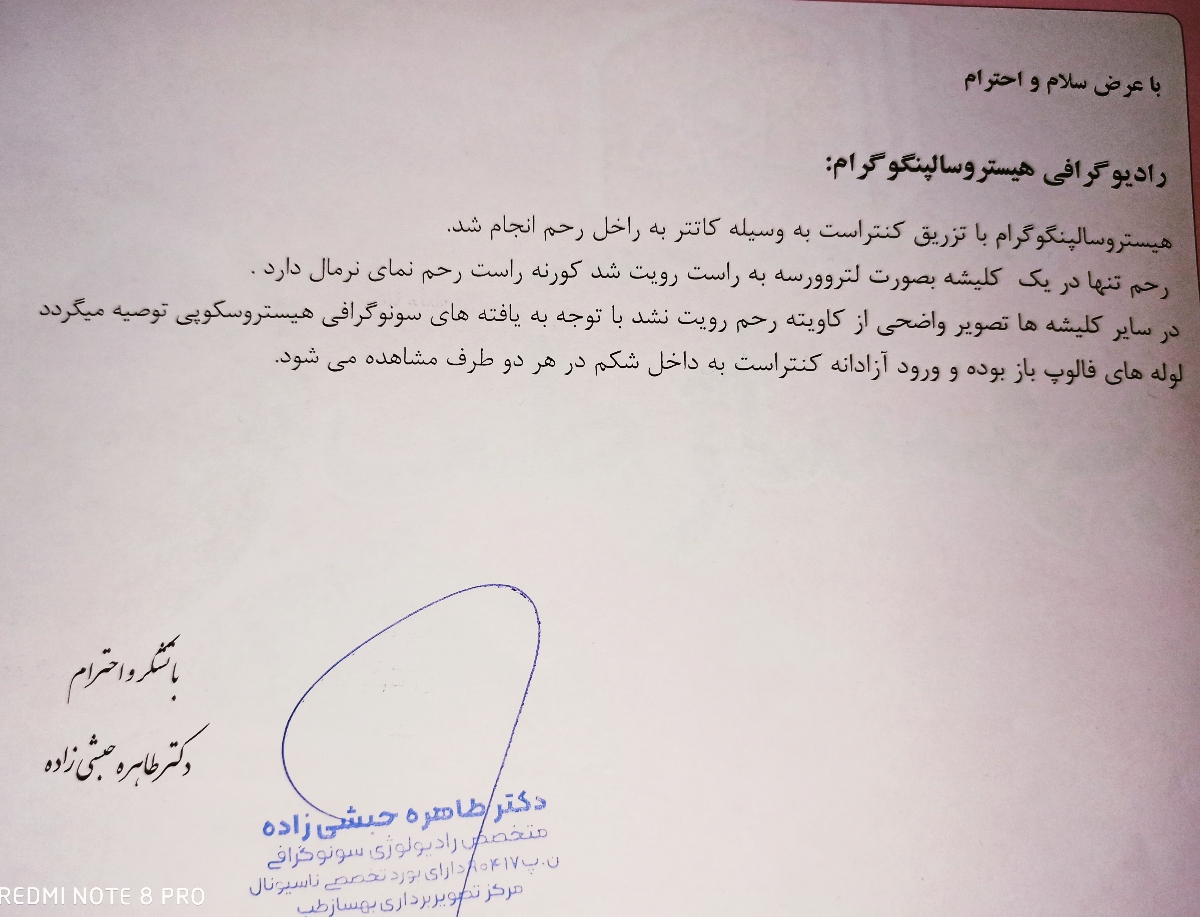 با عرض سلام و احترام
رادیوگرافی هیستروسالپنگوگرام:
هیستروسالپنگوگرام با تزریق کنتراست به وسیله کاتتر به راخل رحم انجام شد.
رحم تنها در یک کلیشه بصورت لترووررسه به راست رویت شد کورنه راست رحم نمای نرمال دارد .
در سایر کلیشه ها تصویر واضحی از کاویته رحم رویت نشد با توجه به یافته های سونوگرافی هیستروسکوپی توصیه میگردد
لوله های فالوپ باز بوده و ورود آزادانه کنتراست به داخل شکم در هر دو طرف مشاهده می شود.
با تشکر و احترام
دکتر طاهره حبشی زاده
دکتر طاهره حبشی زاده
متخصص رادیولوژی سونوگرافی
ن.پ ۹۰۴۱۷ دارای بورد تخصصی ناسیونال
مرکز تصویربرداری بهسازطب
REDMI NOTE 8 PRO